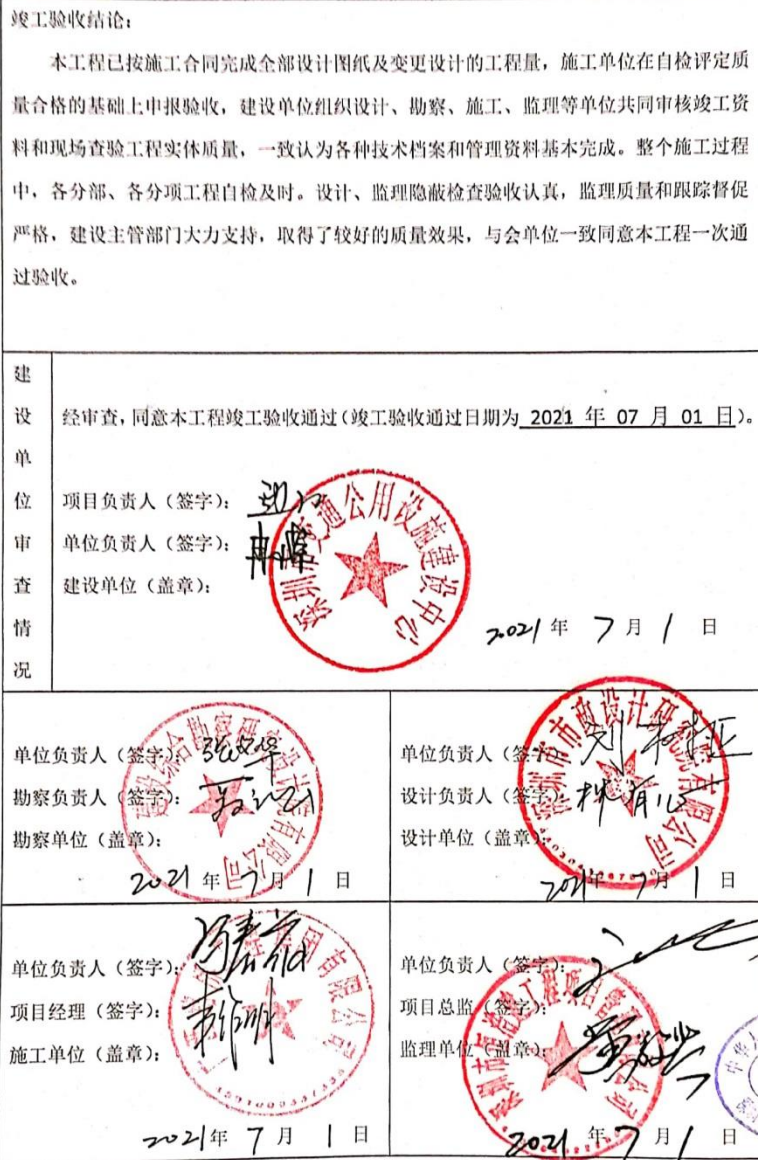 竣工验收结论：
本工程已按施工合同完成全部设计图纸及变更设计的工程量，施工单位在自检评定质
量合格的基础上申报验收，建设单位组织设计、勘察、施工、监理等单位共同审核竣工资
料和现场查验工程实体质量，一致认为各种技术档案和管理资料基本完成。整个施工过程
中，各分部、各分项工程自检及时。设计、监理隐蔽检查验收认真，监理质量和跟踪督促
严格，建设主管部门大力支持，取得了较好的质量效果，与会单位一致同意本工程一次通
过验收。
建设单位审查情况
经审查，同意本工程竣工验收通过（竣工验收通过日期为 2021 年 07 月 01 日）。
项目负责人（签字）：
单位负责人（签字）：
建设单位（盖章）：
深圳市交通公用设施建设中心
2021年 7月 1 日
单位负责人（签字）：
勘察负责人（签字）：
勘察单位（盖章）：
2021年 7月 1 日
单位负责人（签字）：
设计负责人（签字）：
设计单位（盖章）：
深圳市市政设计研究院有限公司
2021年 7月 1 日
单位负责人（签字）：
项目经理（签字）：
施工单位（盖章）：
2021年 7月 1 日
单位负责人（签字）：
项目总监（签字）：
监理单位（盖章）：
2021年 7月 1 日